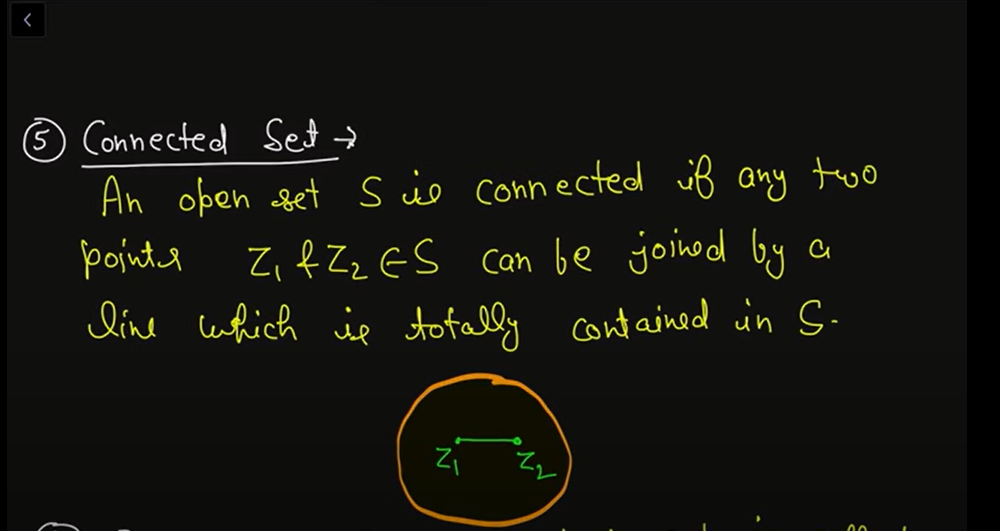 ⑤ Connected Set →
An open set S is connected if any two
points Z₁ & Z₂ ∈ S can be joined by a
line which is totally contained in S.
Z₁ Z₂